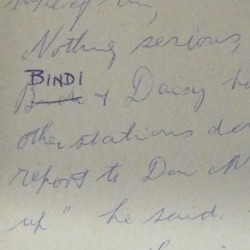 Nothing serious,
BINDI
& Daisy
other stations
report to Don
up" he said.